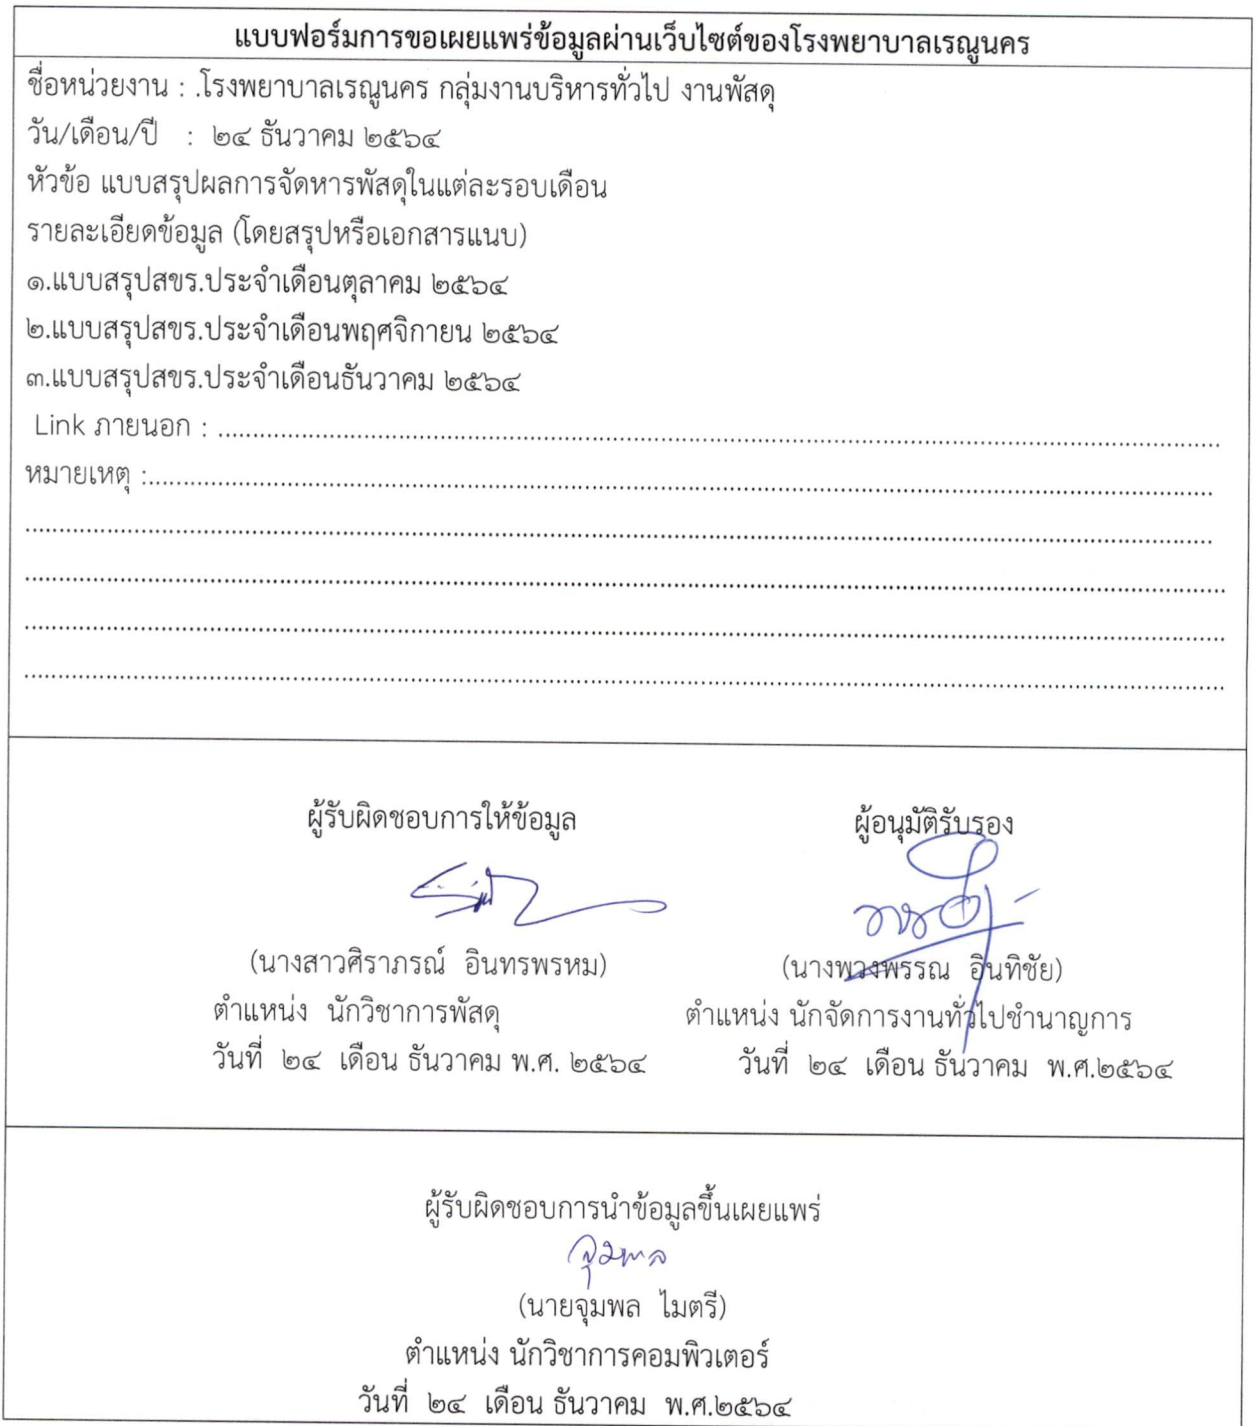 แบบฟอร์มการขอเผยแพร่ข้อมูลผ่านเว็บไซต์ของโรงพยาบาลเรณูนคร
ชื่อหน่วยงาน : .โรงพยาบาลเรณูนคร กลุ่มงานบริหารทั่วไป งานพัสดุ
วัน/เดือน/ปี : ๒๔ ธันวาคม ๒๕๖๔
หัวข้อ แบบสรุปผลการจัดหารพัสดุในแต่ละรอบเดือน
รายละเอียดข้อมูล (โดยสรุปหรือเอกสารแนบ)
๑.แบบสรุปสขร.ประจำเดือนตุลาคม ๒๕๖๔
๒.แบบสรุปสขร.ประจำเดือนพฤศจิกายน ๒๕๖๔
๓.แบบสรุปสขร.ประจำเดือนธันวาคม ๒๕๖๔
Link ภายนอก : ........................................................................
หมายเหตุ :........................................................................
ผู้รับผิดชอบการให้ข้อมูล ผู้อนุมัติรับรอง
(นางสาวศิราภรณ์ อินทรพรหม) (นางพวงพรรณ อินทิชัย)
ตำแหน่ง นักวิชาการพัสดุ ตำแหน่ง นักจัดการงานทั่วไปชำนาญการ
วันที่ ๒๔ เดือน ธันวาคม พ.ศ. ๒๕๖๔ วันที่ ๒๔ เดือน ธันวาคม พ.ศ.๒๕๖๔
ผู้รับผิดชอบการนำข้อมูลขึ้นเผยแพร่
จุมพล
(นายจุมพล ไมตรี)
ตำแหน่ง นักวิชาการคอมพิวเตอร์
วันที่ ๒๔ เดือน ธันวาคม พ.ศ.๒๕๖๔